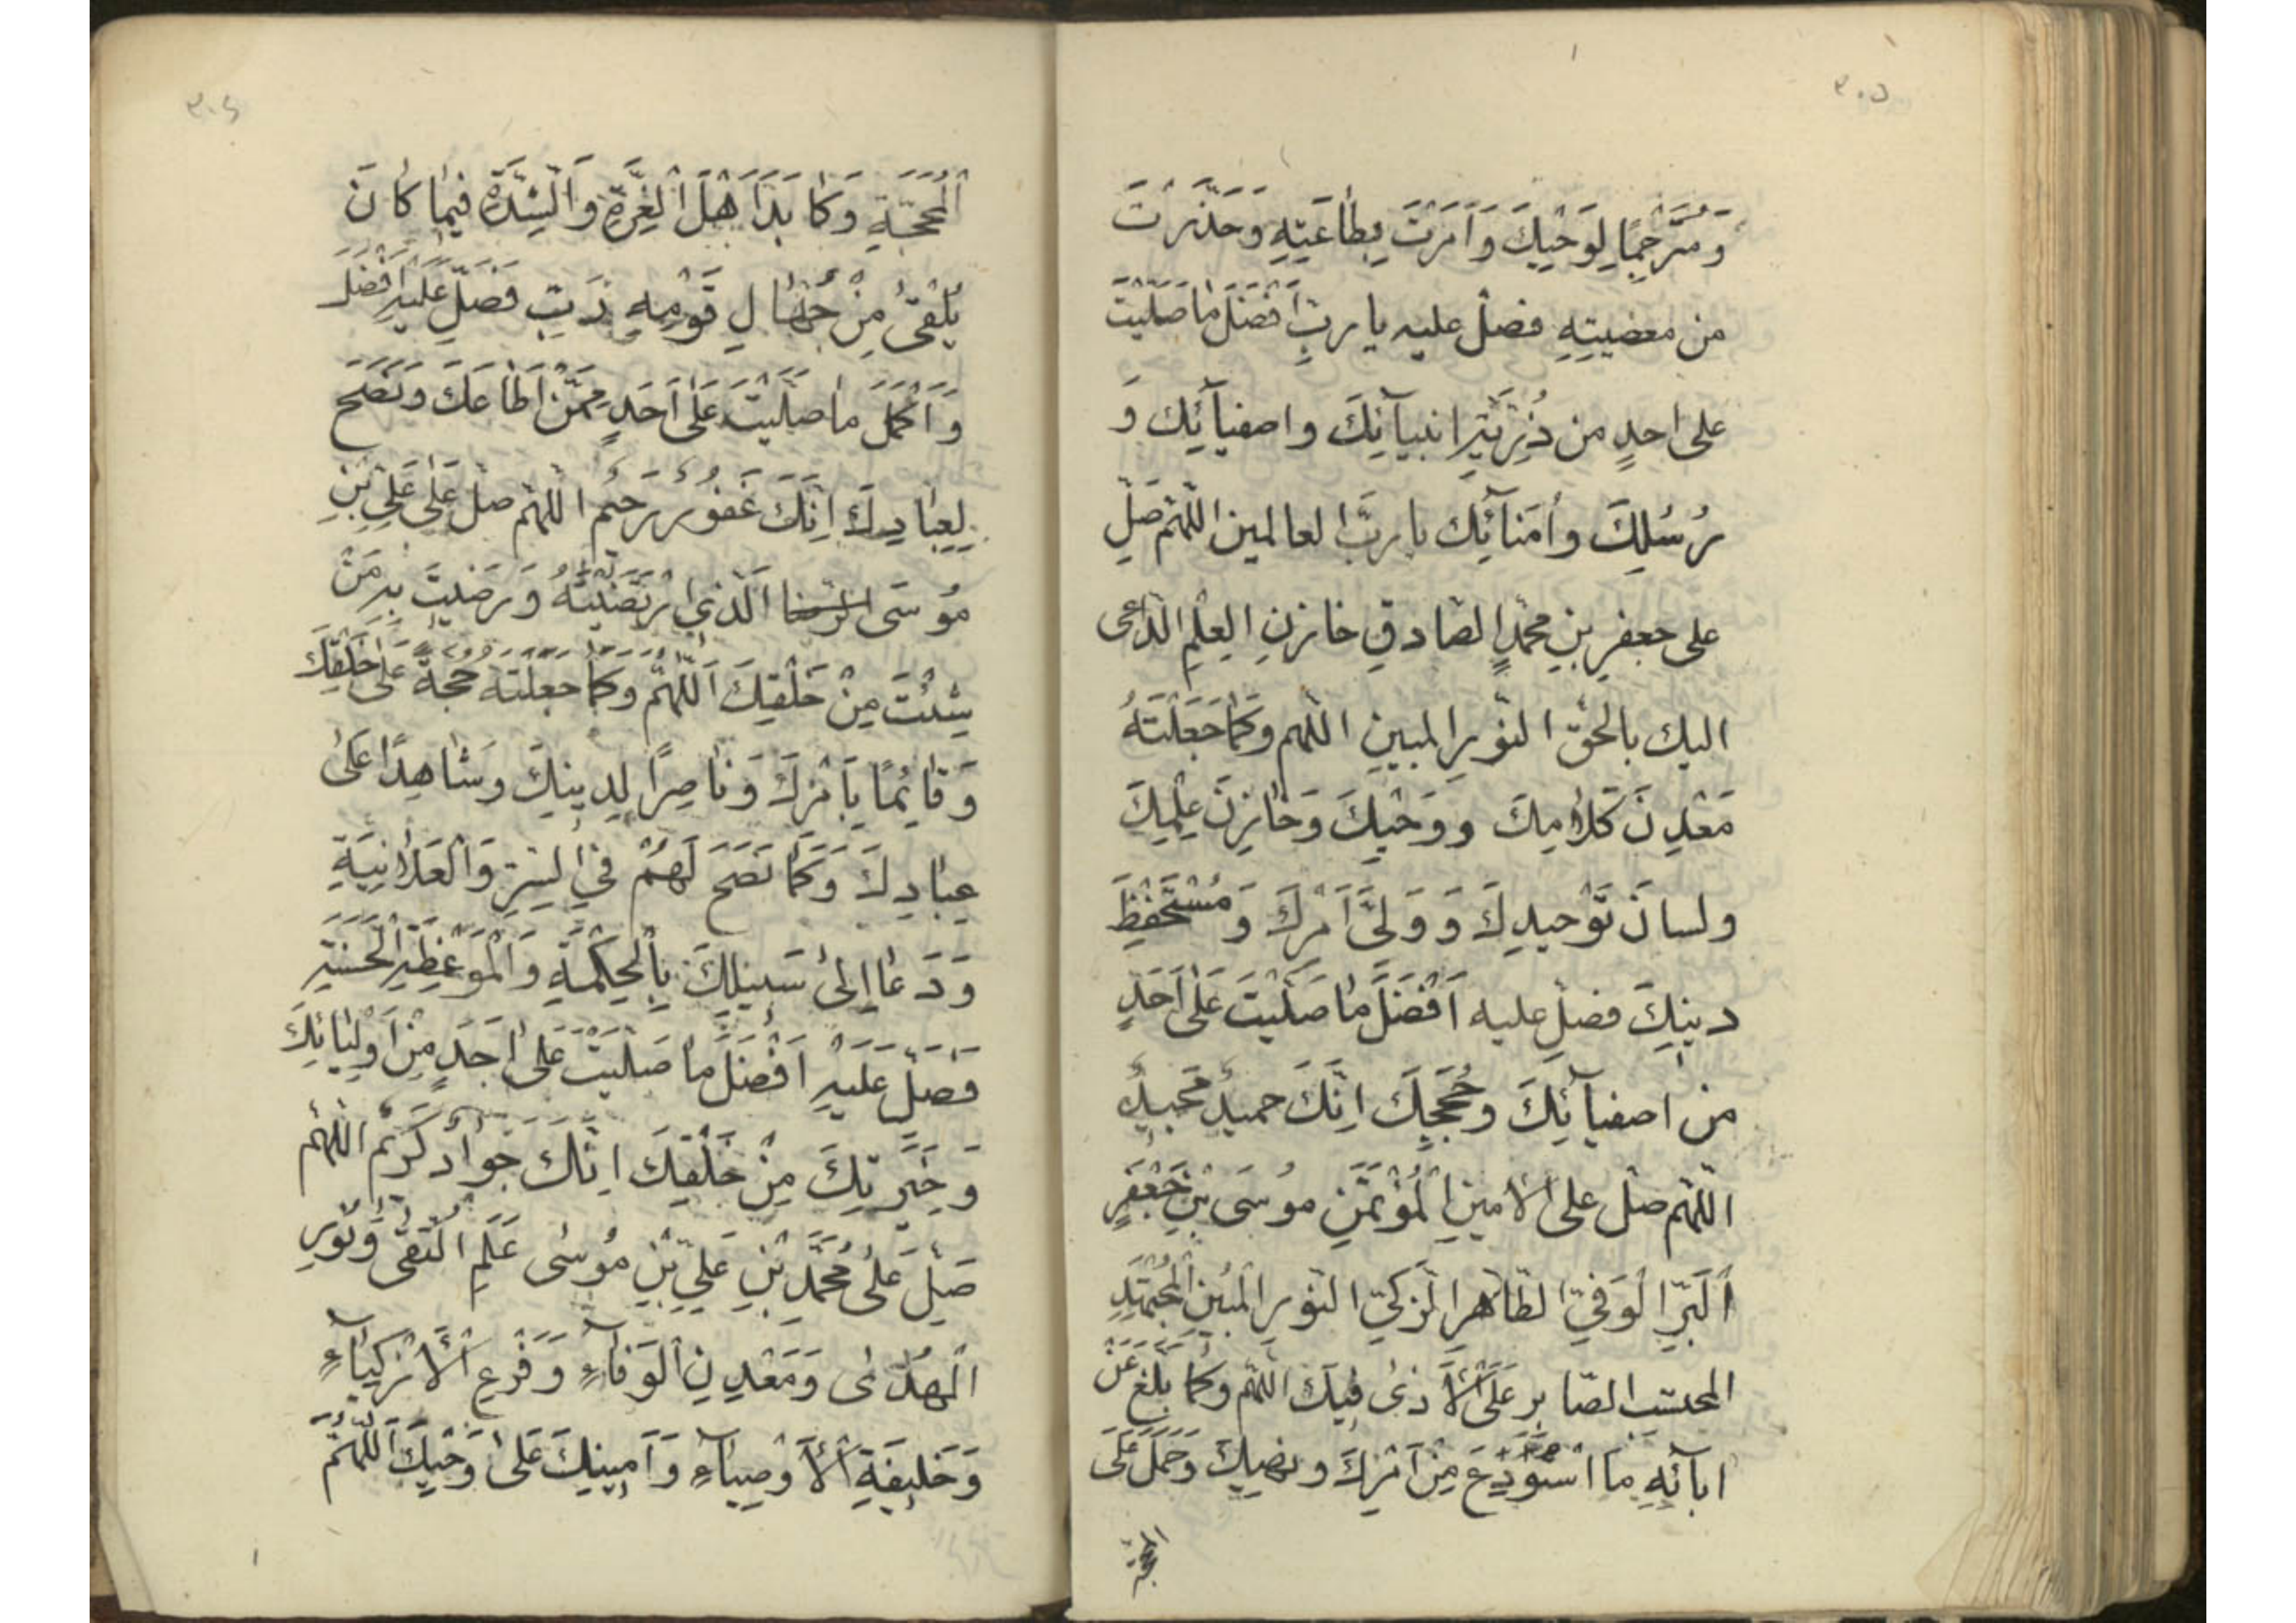 ٣٠٥
وَمُتَرْجِمًا لِوَحْيِكَ وَاَمَرْتَ بِطَاعَتِهِ وَحَذَّرْتَ
من معصيتِهِ فصلّ عليه يا ربِّ اَفْضَلَ مَا صَلَّيْتَ
على احدٍ من ذُرِّيَّةِ انبيآئِكَ واصفيآئِكَ وَ
رُسُلِكَ وأُمَنآئِكَ يا ربَّ العالمين اللّهُمَّ صَلِّ
على جعفرِ بنِ محمّدٍ الصّادقِ خازنِ العِلْمِ الدّاعى
اليك بالحقّ النّورِ المبينِ اللّهم وَكَمَا جَعَلْتَهُ
مَعْدِنَ كَلَامِكَ وَوَحْيِكَ وَخَازِنَ عِلْمِكَ
ولسانَ تَوْحيدِكَ وَوَلِىَّ اَمْرِكَ وَمُسْتَحْفِظَ
دينِكَ فصلّ عليه اَفْضَلَ مَا صَلَّيْتَ عَلَى اَحَدٍ
من اصفيآئِكَ وحُجَجِكَ اِنَّكَ حميدٌ مَجيدٌ
اللّهم صلّ على الامينِ الْمُؤْتَمَنِ مُوسَى بْنِ جَعْفَرٍ
اَلْبَرِّ الْوَفِيّ الطّاهرِ الزّكيّ النّورِ الْمُبينِ الْمُجْتَهِدِ
المحتسب الصّابرِ عَلَى الْاَذٰى فيكَ اللّهُمَّ وَكَمَا بَلَّغَ عَنْ
ابآئِهِ مَا اسْتُوْدِعَ مِنْ اَمْرِكَ ونهيِكَ وَحَمَلَ عَلَى
المحجّة
٣٠٤
اَلْمَحَجَّةِ وَكَابَدَ اَهْلَ الْغِرَّةِ وَالْشِّدَّةِ فيمٰا كَانَ
يَلْقىٰ مِنْ جُهّٰالِ قَوْمِهِ رَبِّ فَصَلِّ عَلَيْهِ اَفْضَلَ
وَاَكْمَلَ مَا صَلَّيْتَ عَلٰى اَحَدٍ مِمَّنْ اَطَاعَكَ وَنَصَحَ
لِعِبٰادِكَ اِنَّكَ غَفُورٌ رَحيم اللّهم صلّ عَلٰى عَلِىِّ بْنِ
مُوسَى الرّضا اَلَّذى ارْتَضَيْتَهُ وَرَضيتَ بِهِ مَنْ
شِئْتَ مِنْ خَلْقِكَ اَللّهُمَّ وَكَمَا جَعَلْتَهُ حُجَّةً عَلٰى خَلْقِكَ
وَقَائِمًا بِاَمْرِكَ وَنَاصِرًا لِدينِكَ وَشَاهِدًا عَلٰى
عِبٰادِكَ وَكَمَا نَصَحَ لَهُمْ فى السِّرِّ وَالْعَلٰانِيَةِ
وَدَعَا اِلىٰ سَبيلِكَ بِالْحِكْمَةِ وَالْمَوْعِظَةِ الْحَسَنَةِ
فَصَلِّ عَلَيْهِ اَفْضَلَ مَا صَلَّيْتَ عَلٰى اَحَدٍ مِنْ اَوْلِيٰائِكَ
وَخِيَرَتِكَ مِنْ خَلْقِكَ اِنَّكَ جَوَادٌ كَريمٌ اللّهم
صَلِّ عَلٰى مُحَمَّدِ بْنِ عَلِىِّ بْنِ مُوسٰى عَلَمِ الْتُّقىٰ وَنُورِ
الْهُدٰى وَمَعْدِنِ الْوَفَاءِ وَفَرْعِ الْاَزْكِيَآءِ
وَخَليفَةِ الْاَوْصِيٰآءِ وَاَمينِكَ عَلٰى وَحْيِكَ اَللّهُمَّ